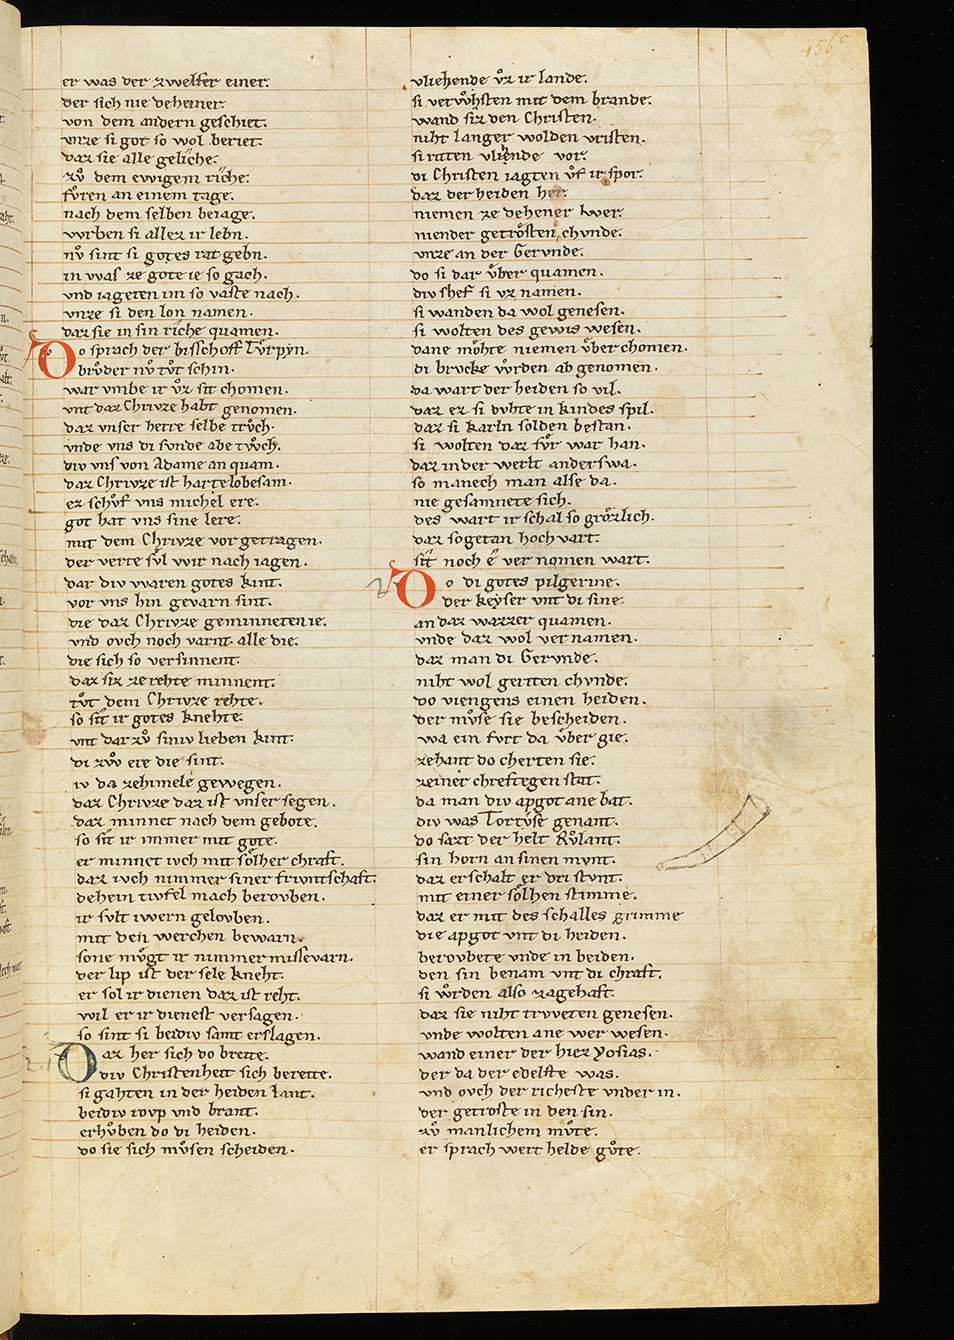 er was der zwelfer einer.
der sich nie deheiner.
von dem andern geschiet.
vnze si got so wol beriet.
daz sie alle geliche.
zů dem ewigem riche.
fůren an einem tage.
nach dem selben beiage.
wrben si allez ir lebn.
nů sint si gotes rat gebn.
in waſ ze gote ie so gach.
vnd iageten im so vaste nach.
vnze si den lon namen.
daz sie in sin riche quamen.
Do sprach der bisschoff Tůrpyn.
brůder nů tůt schin.
war vmbe ir ůz sit chomen.
vnt daz Chrivze habt genomen.
daz vnser herre selbe trůch.
vnde vns di sunde abe twůch.
div vnſ von Adame an quam.
daz Chrivze ist harte lobesam.
ez schůf vns michel ere.
got hat vns sine lere.
mit dem Chrivze vor getragen.
der verte svl wir nach iagen.
dar div waren gotes kint.
vor vns hin gevarn sint.
die daz Chrivze geminneten ie.
vnd ovch noch varnt. alle die.
die sich so versinnent.
daz siz ze rehte minnent.
tůt dem Chrivze rehte.
so sit ir gotes knehte.
vnt dar zů siniv lieben kint.
di zwo eie die sint.
iv da ze himele gewegen.
daz Chrivze daz ist vnser segen.
daz minnet nach dem gebote.
so sit ir immer mit gote.
er minnet ivch mit solher chraft.
daz ivch nimmer siner frivntschaft.
dehein tivfel mach berovben.
ir svlt iwern gelovben.
mit den werchen bewarn.
sone mvgt ir nimmer missevarn.
der lip ist der sele kneht.
er sol ir dienen daz ist reht.
wil er ir dienest versagen.
so sint si beidiv samt erslagen.
Daz her sich do breite.
div Christenheit sich bereite.
si gahten in der heiden lant.
beidiv rovp vnd brant.
erhůben do di heiden.
do sie sich můsen scheiden.
vliehende ůz ir lande.
si verwůhsten mit dem brande.
wand siz den Christen.
niht langer wolden vristen.
si riten vliehende vor.
di Christen iagten ůf ir spor.
daz der heiden her.
niemen ze dehener wer.
niender getrősten chvnde.
vnze an der Gervnde.
do si dar ůber quamen.
div shef si vz namen.
si wanden da wol genesen.
si wolten des gewis wesen.
dane mőhte niemen ůber chomen.
di brvcke wrden ab genomen.
da wart der heiden so vil.
daz ez si dvhte in kindes spil.
daz si karln solden bestan.
si wolten daz fůr war han.
daz in der werlt anderswa.
so manech man alse da.
nie gesamnete sich.
des wart ir schal so grőzlich.
daz sogetan hochvart.
sit noch e vernomen wart.
Do di gotes pilgerine.
der keyser vnt di sine.
an daz wazzer quamen.
vnde daz wol vernamen.
daz man di Gervnde.
niht wol geriten chvnde.
do viengens einen heiden.
der můse sie bescheiden.
wa ein fvrt da ůber gie.
zehant do cherten sie.
zeiner chreftegen stat.
da man div apgot ane bat.
div was Tortůse genant.
do sazt der helt Růlant.
sin horn an sinen mvnt.
daz erschalt er dri stvnt.
mit einer sőlhen stimme.
daz er mit des schalles grimme
die apgot vnt di heiden.
berovbete vnde in beiden.
den sin benam vnt di chraft.
si wrden also zagehaft.
daz sie niht trvveten genesen.
vnde wolten ane wer wesen.
wand einer der hiez Yosias.
der da der edelste was.
vnd ovch der richeste vnder in.
der getroste in den sin.
zů manlichem můte.
er sprach wert helde gůte.